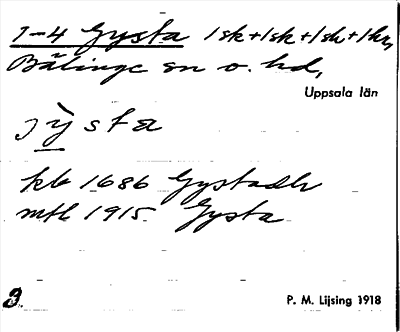 1-4 Gysta 1sk+1sk+1sk+1kr,
Bälinge sn o. hd,
Uppsala län
jỳsta
kb 1686 Gystadh
mtl 1915 Gysta
3.
P. M. Lijsing 1918